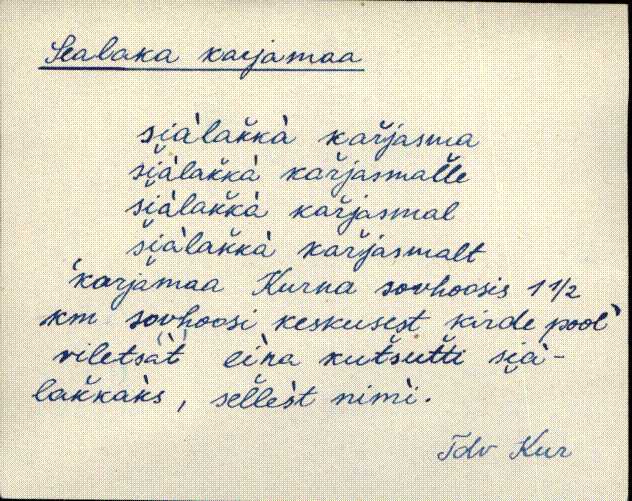 Sealaka karjamaa
siàlak̆kà kar̆jasma
si̭àlak̆kà kar̆jasmal̆le
si̭àlak̆kà kar̆jasmal
si̭àlak̆kà kar̆jasmalt
karjamaa Kurna sovhoosis 1 1/2
km sovhoosi keskusest kirde pool
viletsàt eìna kutsutti si̭à-
lak̆kàks, sel̆lèst nimì.
Tdv Kur